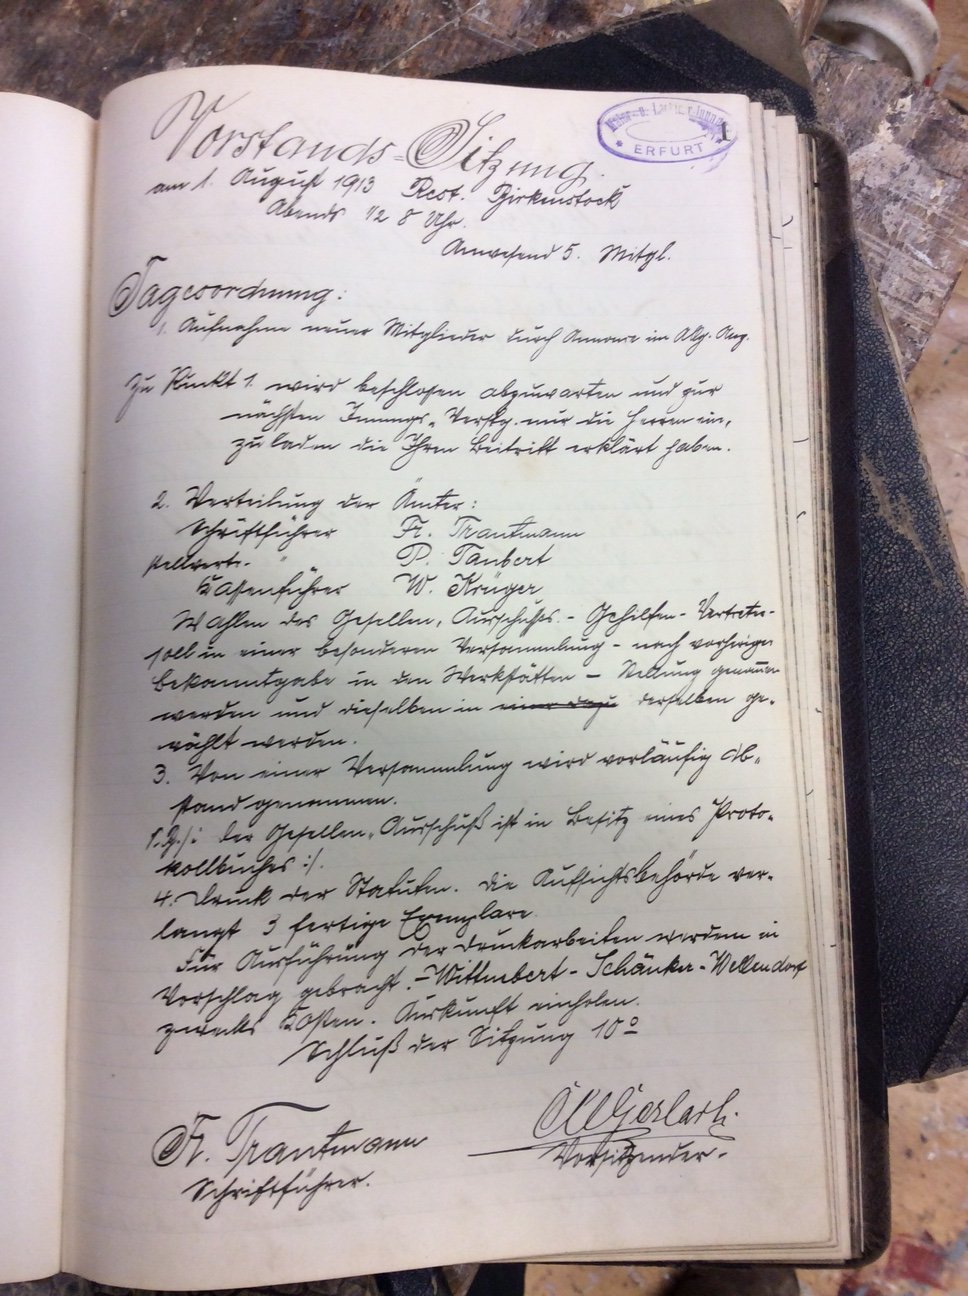 Vorstands-Sitzung.
ERFURT
1
am 1. August 1913 Rest. Birkenstock
Abends 1/2 8 Uhr.
Anwesend 5. Mitgl.
Tagesordnung:
1. Aufnahme neuer Mitglieder durch Annonce im Allg. Anz.
Zu Punkt 1. wird beschlossen abzuwarten und zur
nächsten Innungs-Versg. nur die Herren ein,
zu laden die Ihren Beitritt erklärt haben.
2. Verteilung der Ämter:
Schriftführer Fr. Trautmann
stellvertr. " P. Taubert
Kassenführer W. Krüger
Wahlen des Gesellen, Ausschusses. - Gehilfen-Vertreter-
soll in einer besonderen Versammlung - nach vorheriger
bekanntgabe in den Werkstätten - Stellung genommen
werden und dieselben in derselben ge-
wählt werden.
3. Von einer Versammlung wird vorläufig Ab-
stand genommen.
/: der Gesellen-Ausschuß ist in Besitz eines Proto-
kollbuches :/.
4. Druck der Statuten. Die Aufsichtsbehörde ver-
langt 3 fertige Exemplare
Für Ausführung der Druckarbeiten werden in
Vorschlag gebracht. - Schänker - Wellendorf
zwecks Kosten. Auskunft einholen.
Schluß der Sitzung 10°
Fr. Trautmann
Schriftführer.
Gerlach.
Vorsitzender.